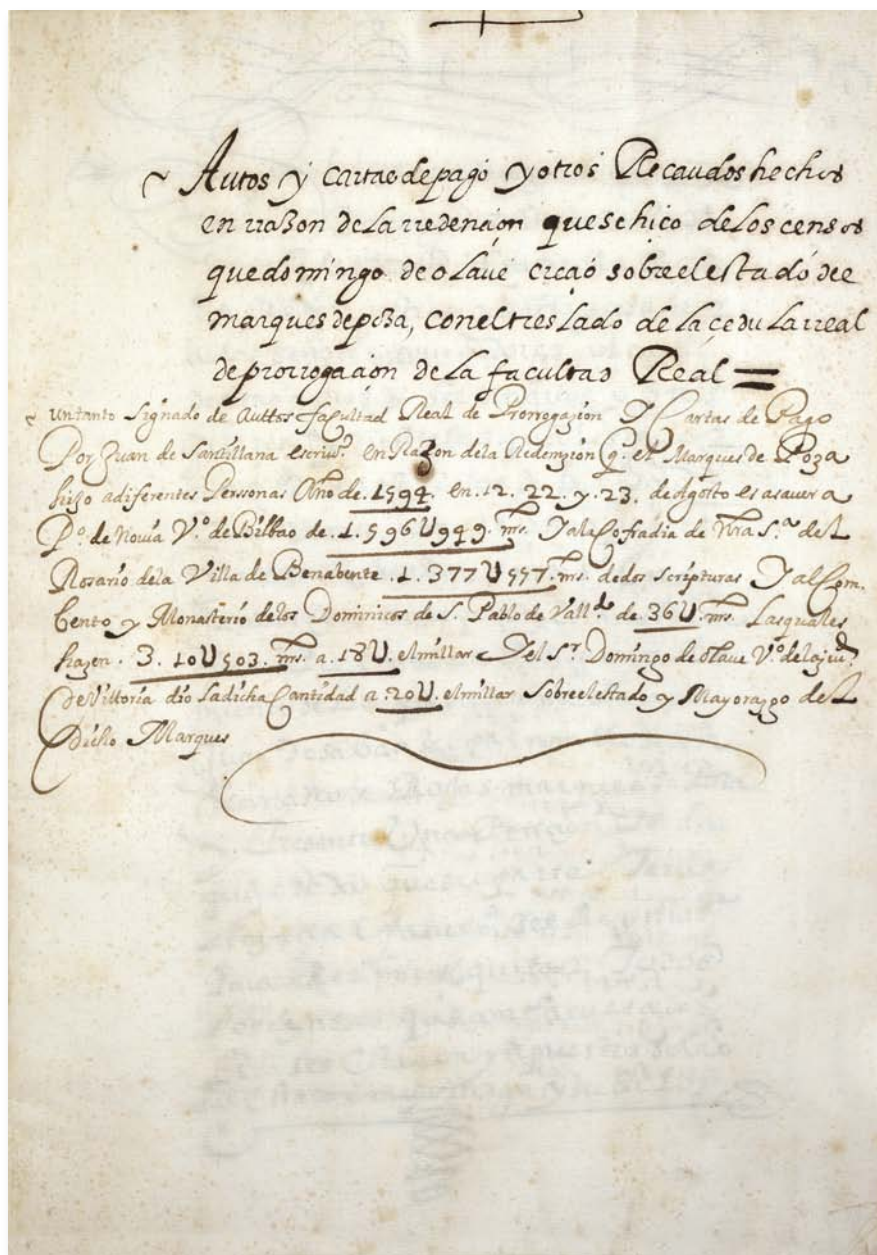 ~ Autos y cartas de pago y otros Recaudos hechos
en rrazon de la rredención que se hico de los censos
que domingo de olaue creció sobre el estado del
marques de poza, con el treslado de la cedula rreal
de prorrogación de la facultad Real =
~ un tanto Signado de Auttos facultad Real de Prorrogazion Y Cartas de Pago
Por Juan de Santillana escriuº. en Razon dela Redenzion q. el Marques de Poza
hizo a diferentes Perssonas Año de .1594. en .12. 22. y .23. de Agosto es a sauer a
Pº. de Nouia Vº. de Bilbao de .1.596U949. mrs. Y ala Cofradia de Nra Sª. del
Rosario dela Villa de Benabente .1.377U557. mrs. de dos scripturas Y al Com-
bento y Monasterio delos Dominicos de S. Pablo de Valld. de 36U. mrs. Las quales
hazen . 3. 10U503. mrs. a .18U. el millar Y el Sr. Domingo de olaue Vº. de la ziud.
de Vittoria dio la dicha Cantidad a .20U. el millar Sobre el estado y Mayorazgo del
Dicho Marques